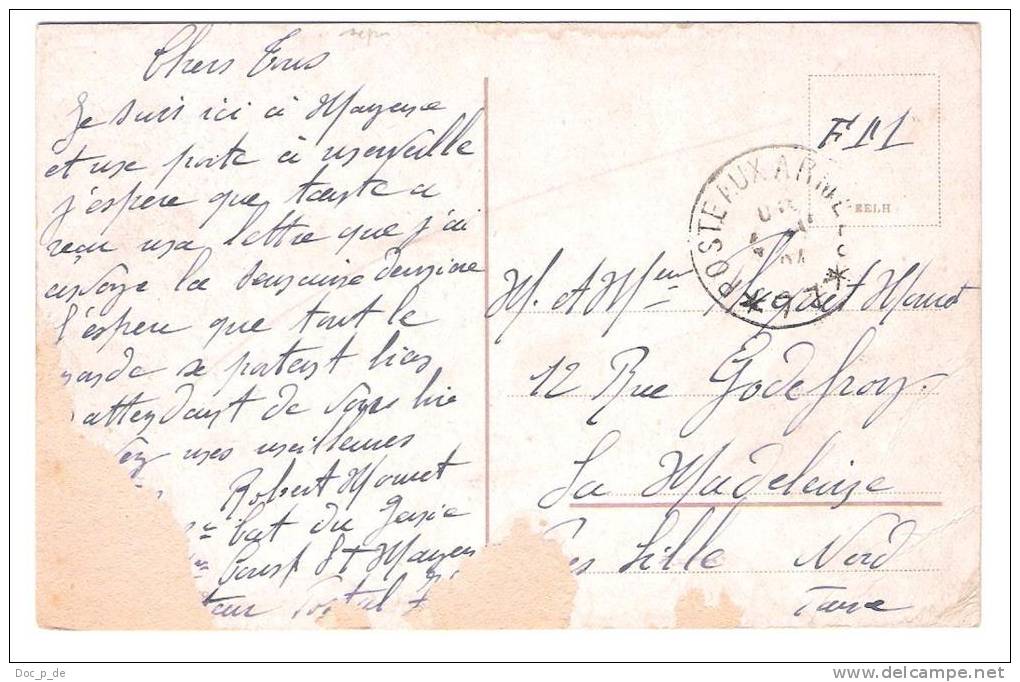 Chers Tous
Je suis ici à Mayense
et me porte à merveille
j'espere que tante a
recu ma lettre que j'ai
la semaine derniere
l'éspere que tout le
monde se portent bien
attendant de vous lire
mes meilleures
Robert Monet
bat du Genie
St Mayen
teur Postal
F M
POSTE AUX ARMEES
EELH
M. et Mme Monet
12 Rue Godefroy.
La Madeleine
Lille Nord
Doc_p_de
www.delcampe.net